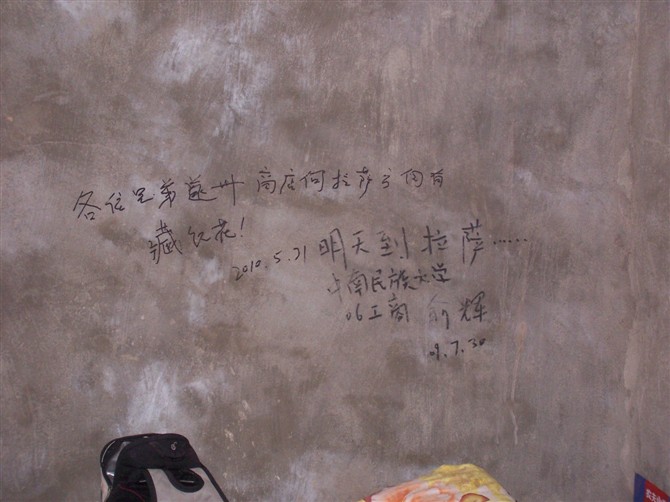 各位兄弟 商店何拉萨 均有
藏红花!
2010.5.31
明天到拉萨……
中南民族大学
06工商 俞辉
09.7.30